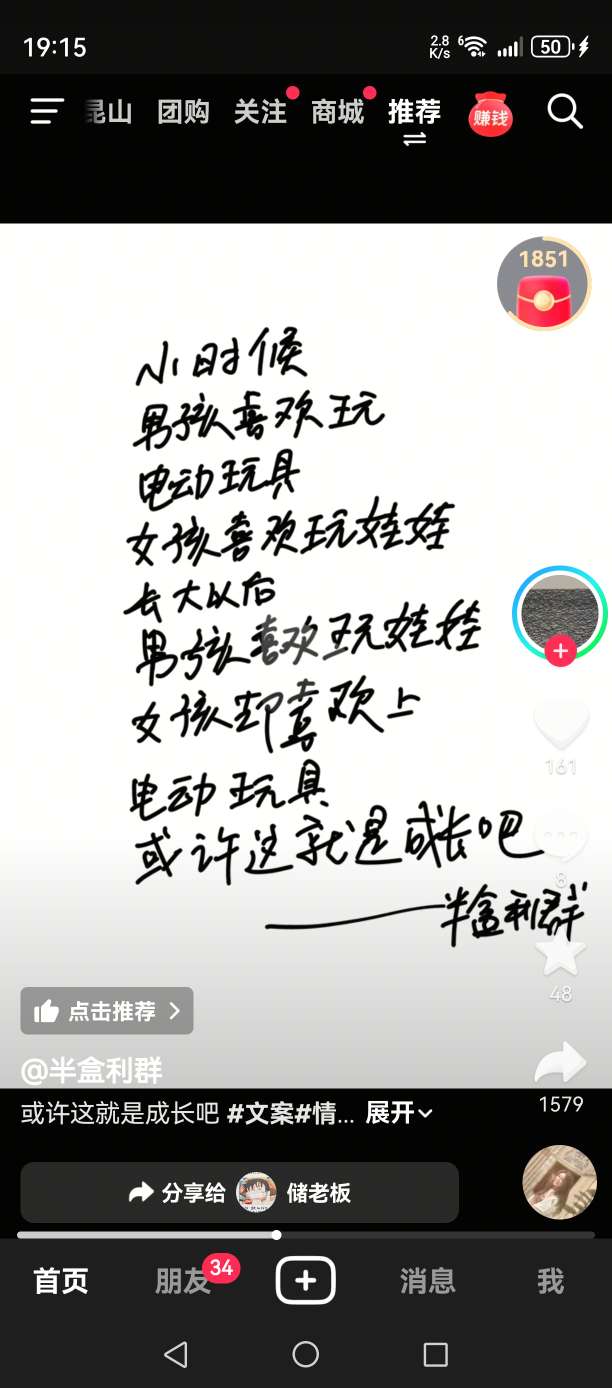 19:15
2.8 K/s
6
50
昆山 团购 关注 商城 推荐 赚钱
1851
小时候
男孩喜欢玩
电动玩具
女孩喜欢玩娃娃
长大以后
男孩喜欢玩娃娃
女孩却喜欢上
电动玩具
或许这就是成长吧
——半盒利群
161
8
48
点击推荐
@半盒利群
1579
或许这就是成长吧 #文案#情... 展开
分享给 储老板
首页 朋友 34 消息 我